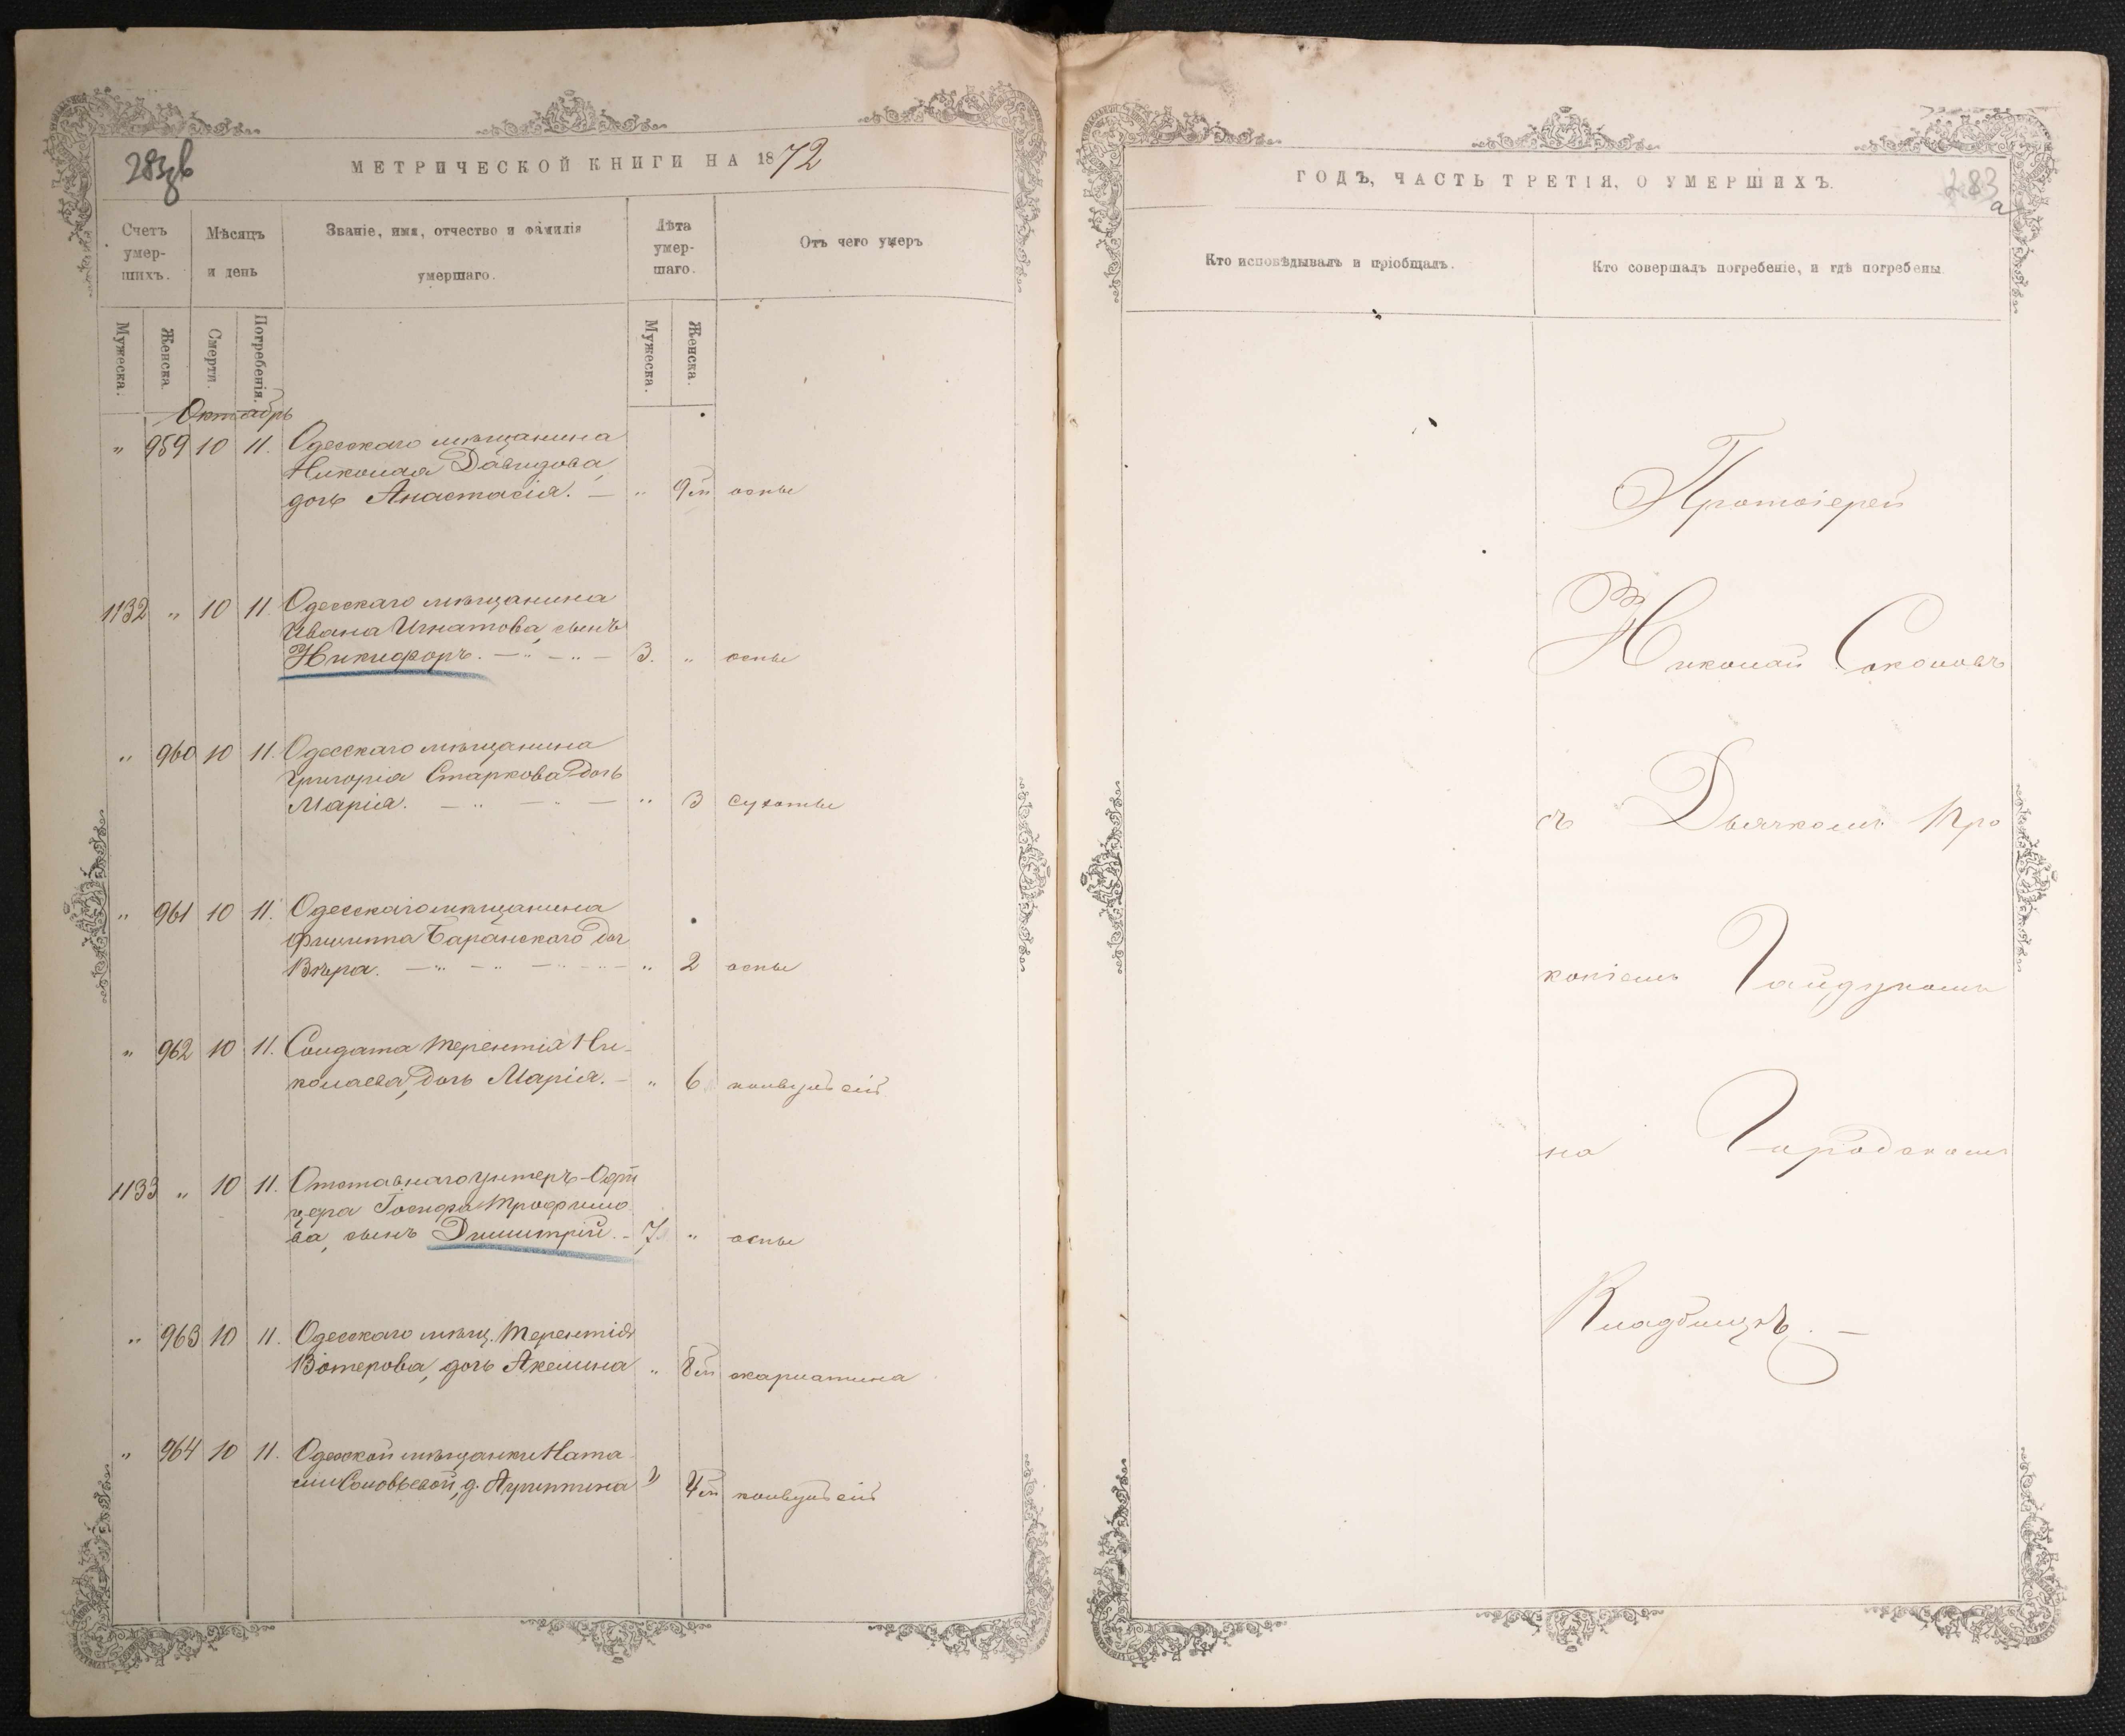 283 об
МЕТРИЧЕСКОЙ КНИГИ НА 1872
Счетъ умер-шихъ.
Мѣсяцъ и день
Званіе, имя, отчество и фамилія умершаго.
Лѣта умер-шаго.
Отъ чего умеръ
Мужеска.
Женска.
Смерти.
Погребенія.
Мужеска.
Женска.
Октябрь
" 959 10 11. Одесскаго мѣщанина
Николая Давидова,
дочь Анастасія. — " 9 м оспы
1132 " 10 11. Одесскаго мѣщанина
Ивана Игнатова, сынъ
Никифоръ. — " — " — 3. " оспы
" 960 10 11. Одесскаго мѣщанина
Григорія Старкова дочь
Марія. — " — " — " 3 сухоты
" 961 10 11. Одесскаго мѣщанина
Филиппа Баранского доч
Вѣра. — " — " — " — " 2 оспы
" 962 10 11. Солдата Терентія Ни-
колаева, дочь Марія. — " 6 конвульсій
1133 " 10 11. Отставнаго унтеръ-Офи
цера Іосифа Трофимо
ва, сынъ Димитрій. - 7. " оспы
" 963 10 11. Одесскаго мѣщ. Терентія
Вотерова, дочь Акелина " 8 м скарлатина
" 964 10 11. Одесской мѣщанки Ната
ліи Соловьевой, д. Агриппина " 4 м конвульсій
ГОДЪ, ЧАСТЬ ТРЕТІЯ, О УМЕРШИХЪ.
283
а
Кто исповѣдывалъ и пріобщалъ.
Кто совершалъ погребеніе, и гдѣ погребены.
Протоіерей
Николай Соколовъ
съ Дьячкомъ Про
копіемъ Гайдукомъ
на Городскомъ
Кладбищѣ. —